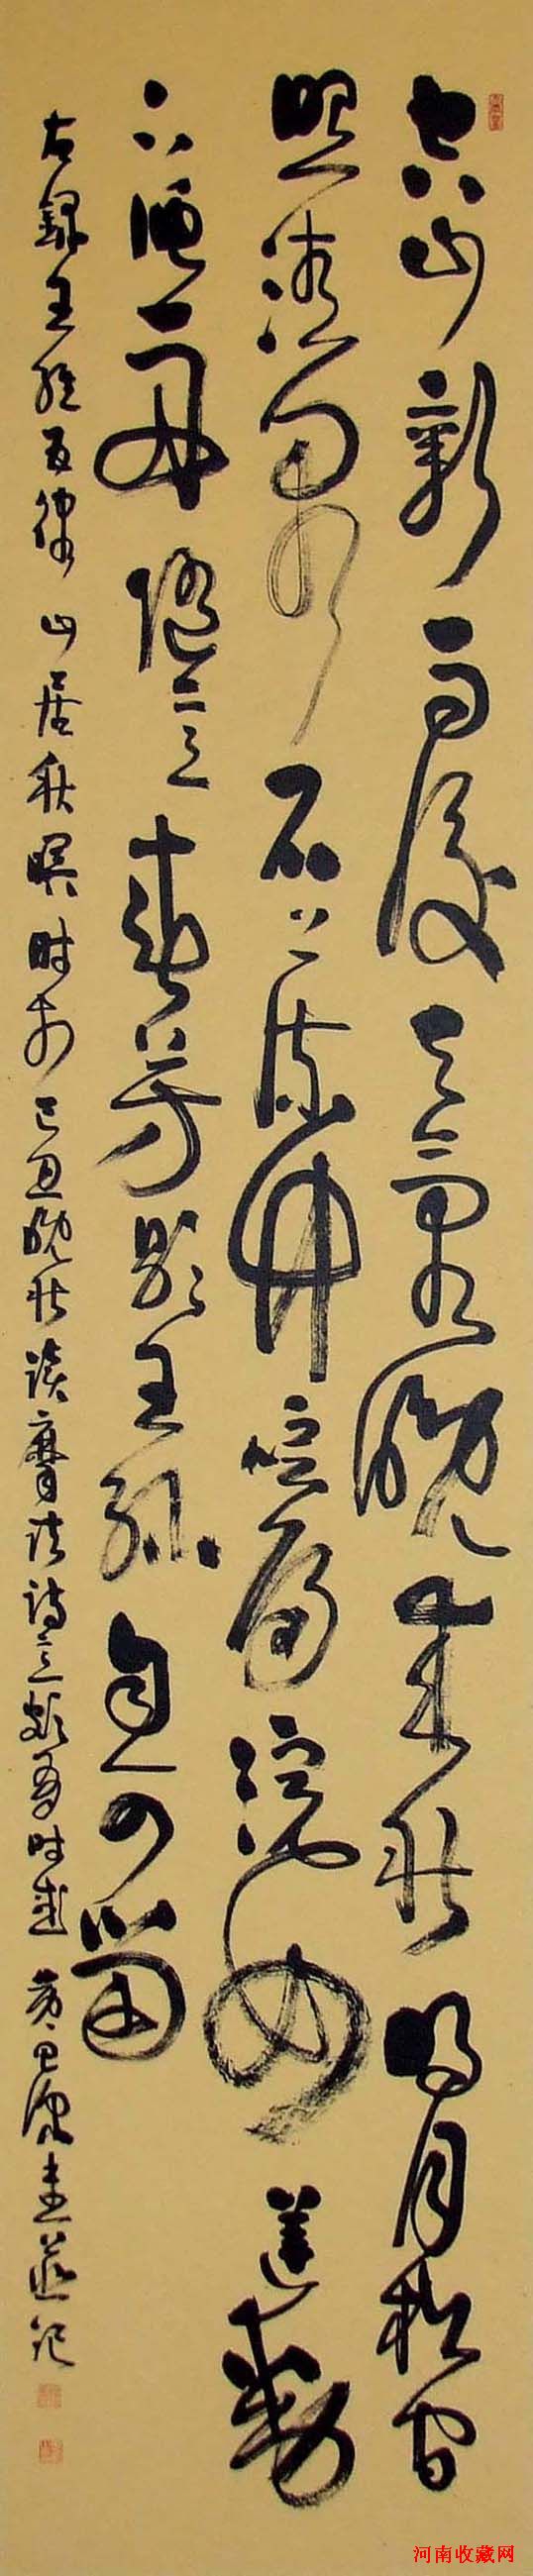 空山新雨後天氣晚來秋明月松間
照清泉石上流竹喧歸浣女蓮動
下漁舟隨意春芳歇王孫自可留
右錄王維五律山居秋暝时於己丑晚秋讀摩詰詩意 时 記
河南收藏网